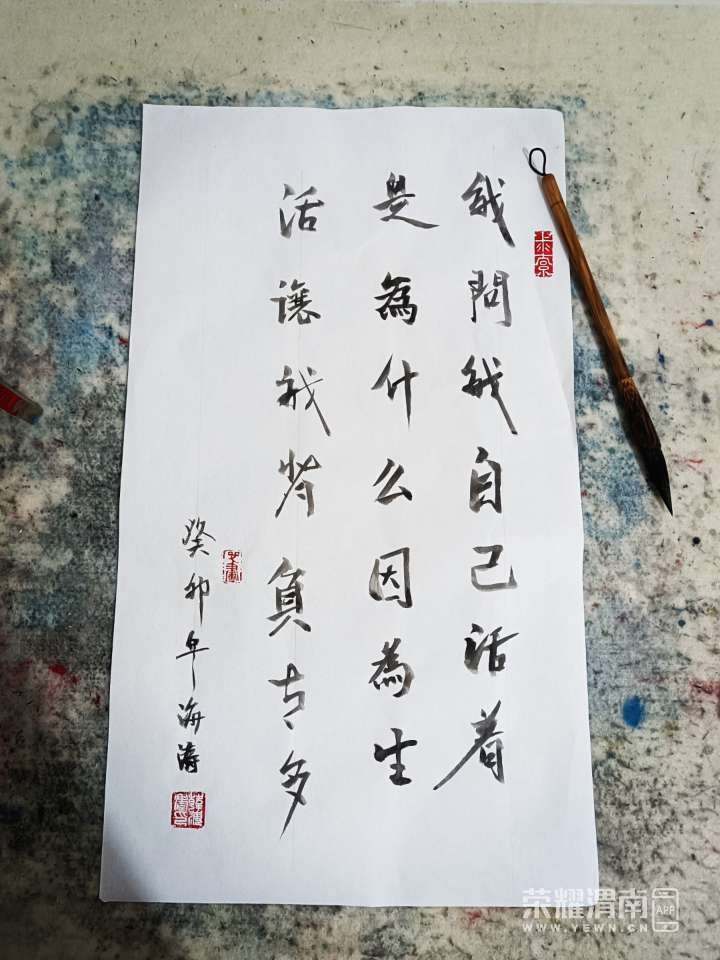 我問我自己活着
是為什么因為生
活讓我背負太多
癸卯年海涛
荣耀渭南
APP
WWW.YEWN.CN